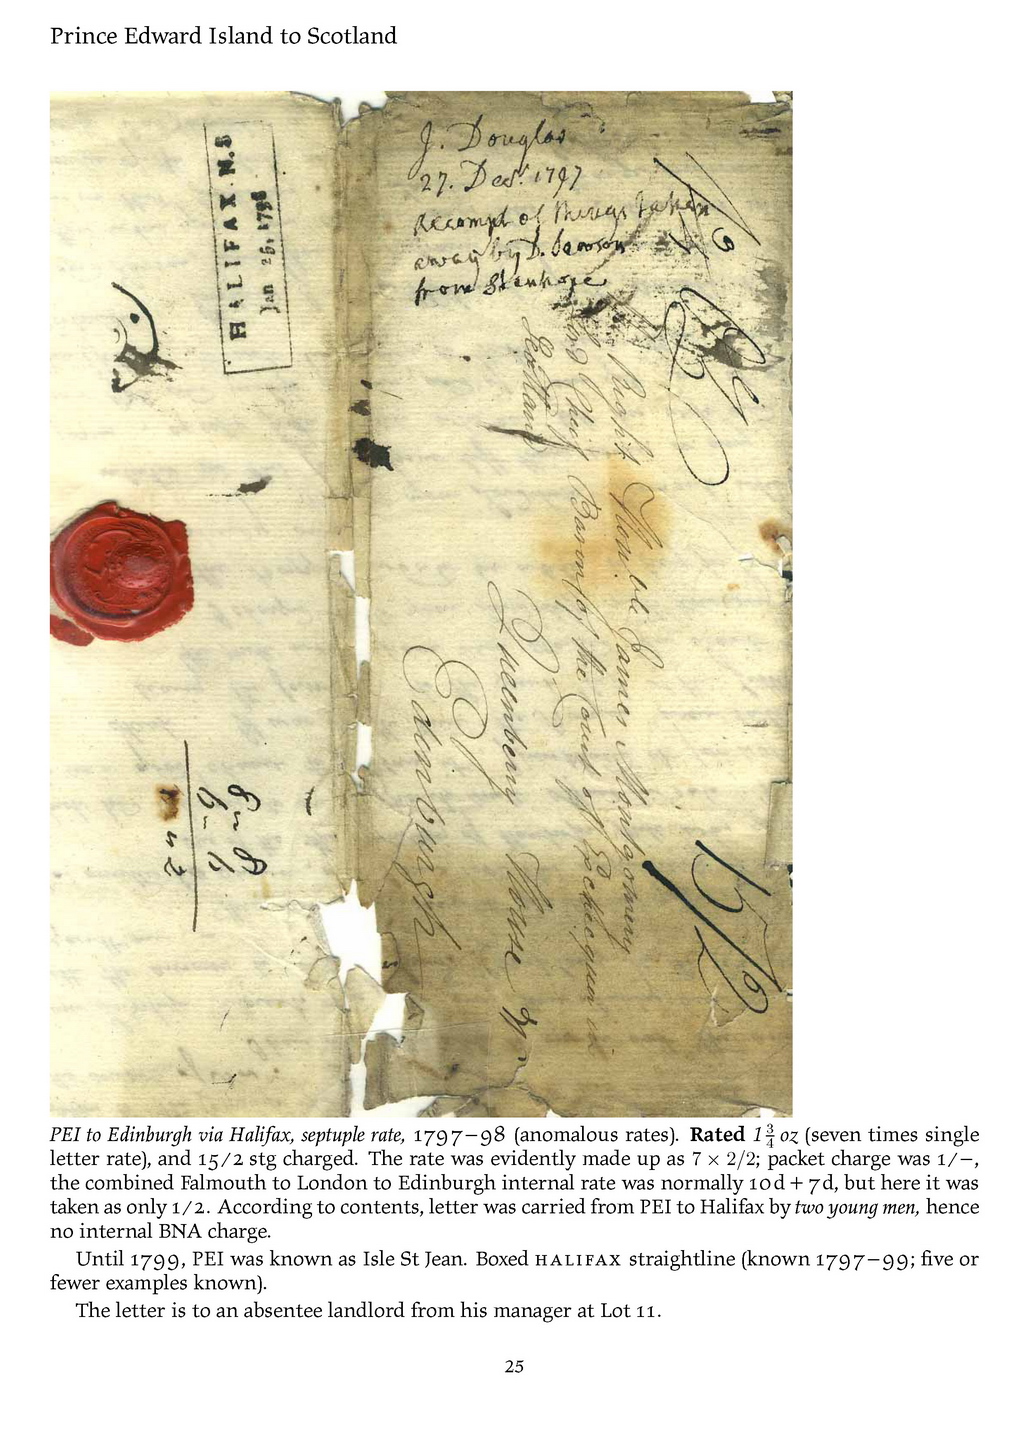 Prince Edward Island to Scotland
J. Douglas
27. Decr. 1797
Accompt of things taken
away by D. Lawson
from Stanhope
HALIFAX. N.S
Jan 26, 1798
Right Hon.ble James Montgomery
Lord Chief Baron of the Court of Exchequer in
Scotland
Queenberry House
Edenburgh
15/2
8 - 8
6 - 6
2
PEI to Edinburgh via Halifax, septuple rate, 1797–98 (anomalous rates). Rated 1¾ oz (seven times single
letter rate), and 15/2 stg charged. The rate was evidently made up as 7 × 2/2; packet charge was 1/–,
the combined Falmouth to London to Edinburgh internal rate was normally 10d + 7d, but here it was
taken as only 1/2. According to contents, letter was carried from PEI to Halifax by two young men, hence
no internal BNA charge.
Until 1799, PEI was known as Isle St Jean. Boxed HALIFAX straightline (known 1797–99; five or
fewer examples known).
The letter is to an absentee landlord from his manager at Lot 11.
25